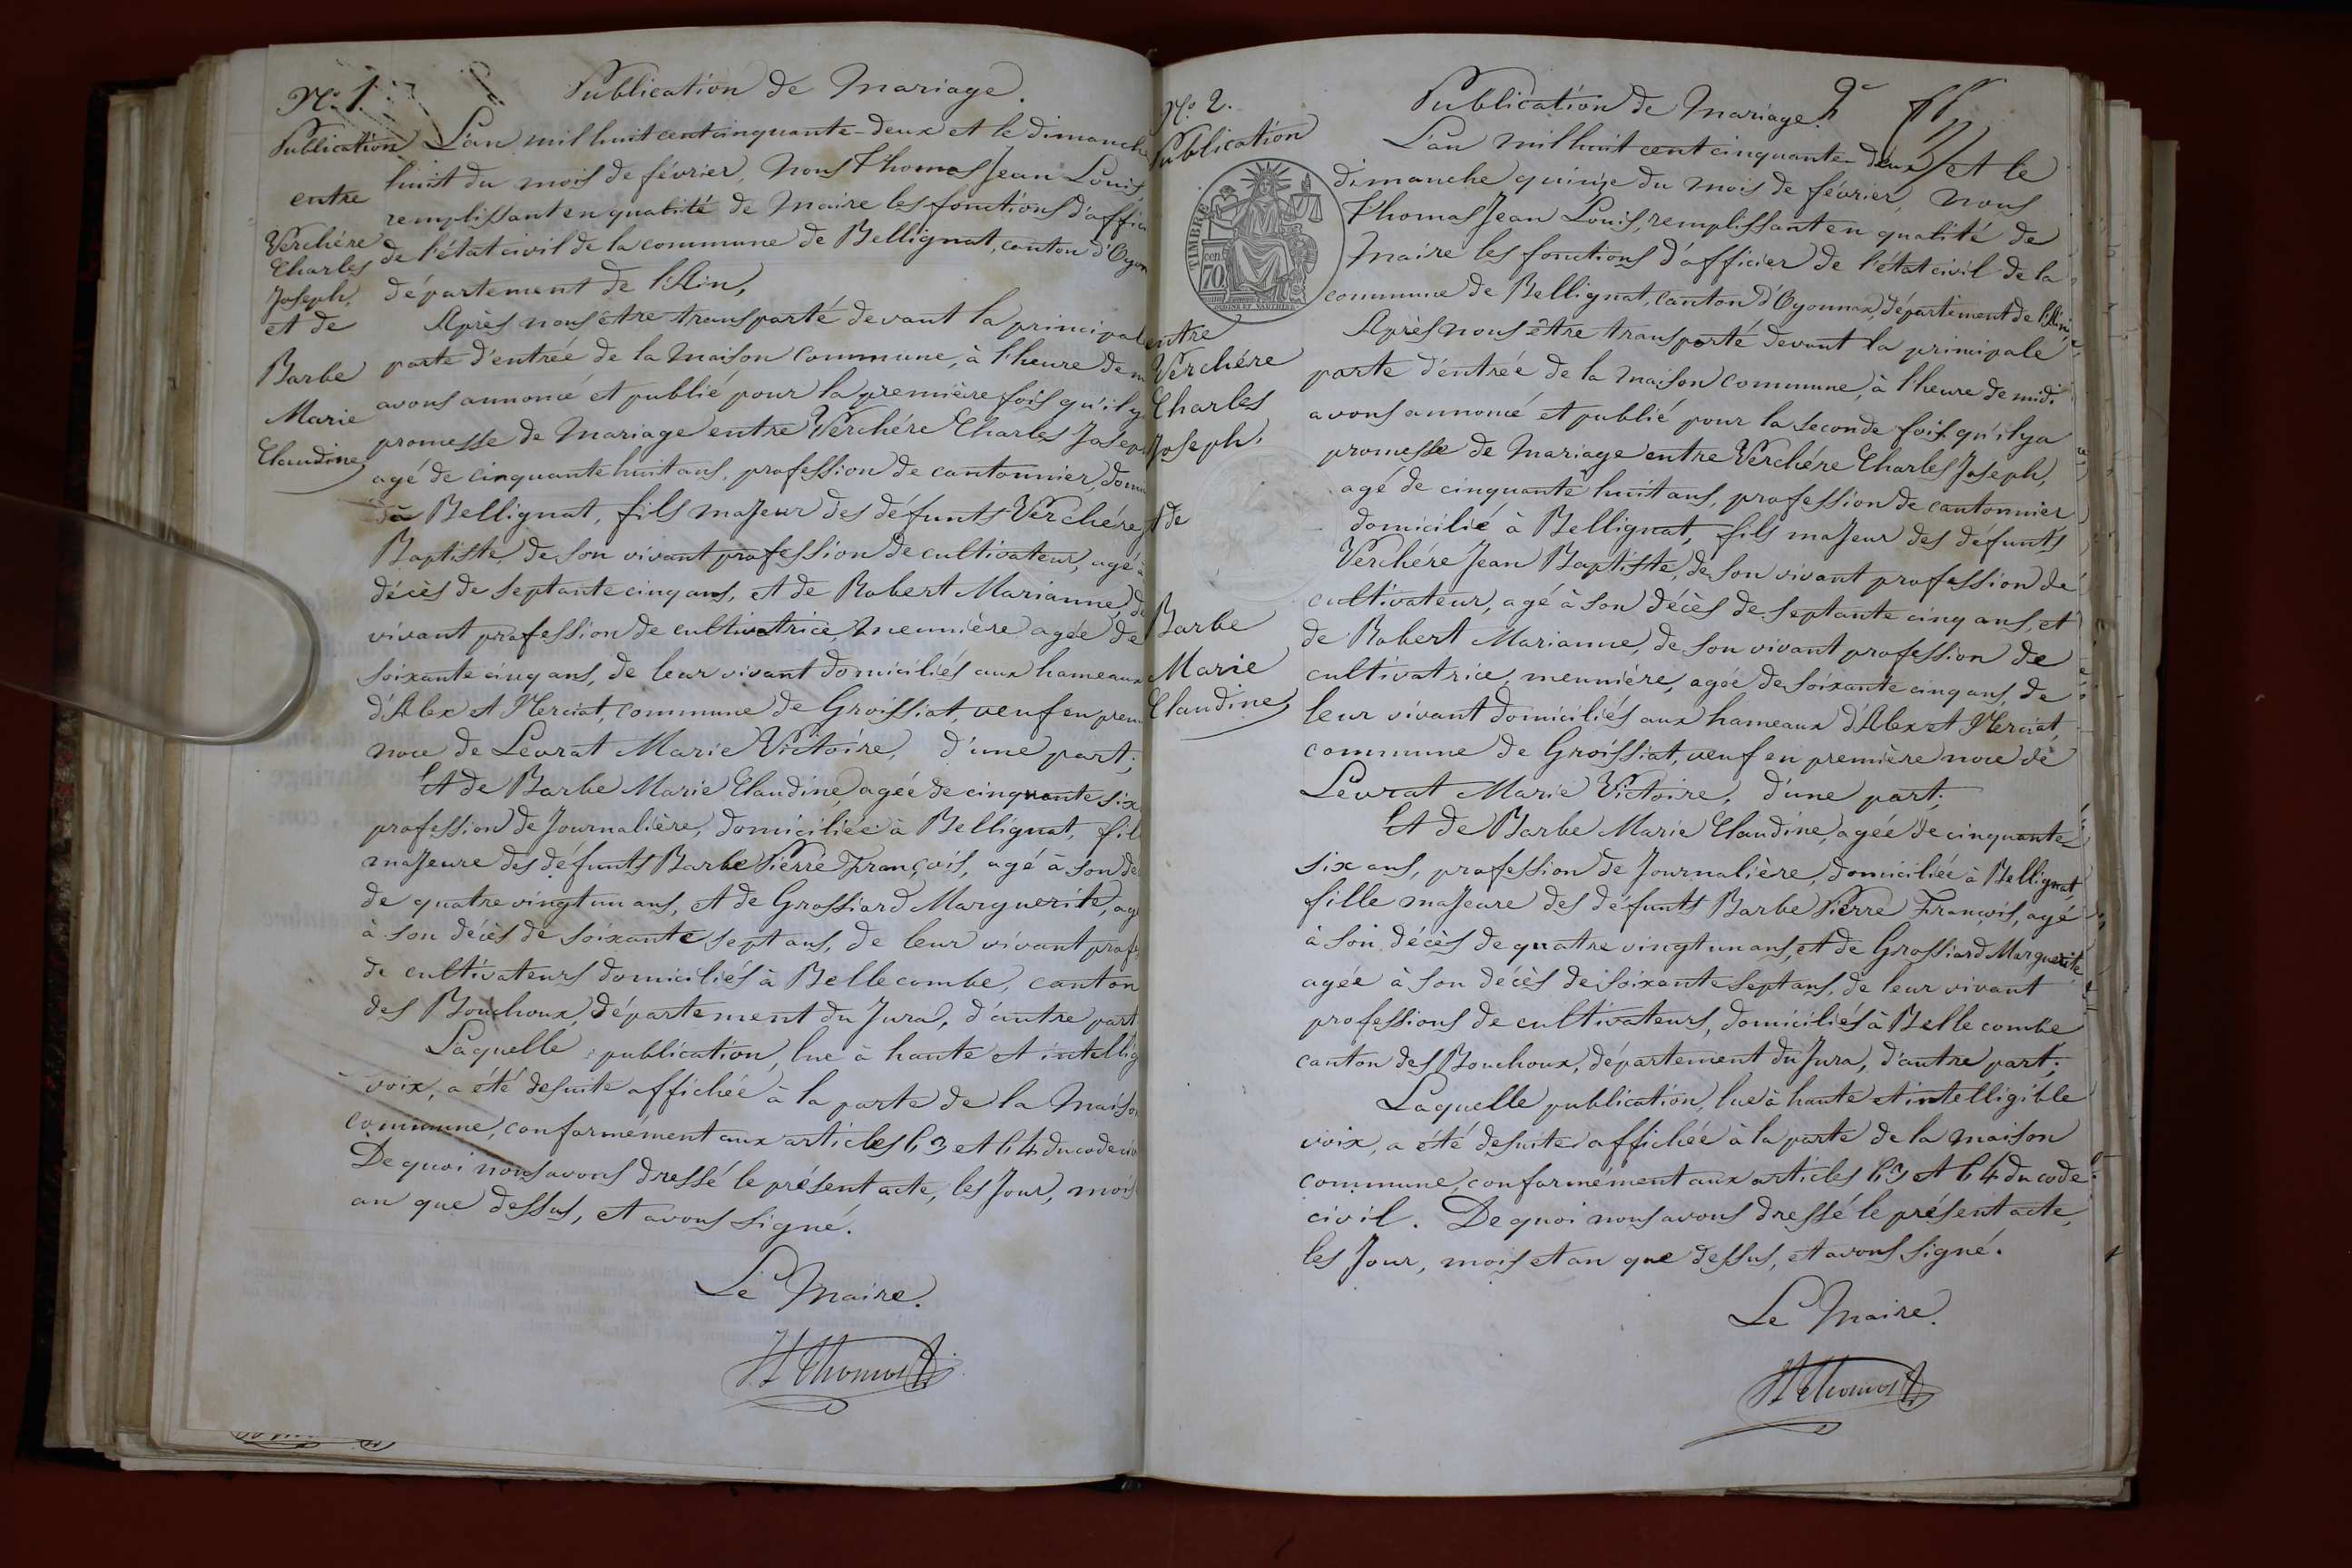 N.º 1.
Publication
entre
Verchére
Charles
Joseph,
et de
Barbe
Marie
Claudine
Publication de Mariage.
L'an mil huit cent cinquante-deux et le dimanche
huit du mois de février, nous Thomas Jean Louis,
remplissant en qualité de Maire les fonctions d'offici
de l'état civil de la commune de Bellignat, canton d'Oyon
département de l'Ain,
Après nous être transporté devant la principal
porte d'entrée de la Maison commune, à l'heure de m
avons annoncé et publié pour la première fois qu'il y
promesse de Mariage entre Verchére Charles Josep
agé de cinquante huit ans, profession de cantonnier dom
à Bellignat, fils majeur des défunts Verchére J
Baptiste, de son vivant profession de cultivateur, agé à
décès de septante cinq ans, et de Robert Marianne, de
vivant profession de cultivatrice, meunière agée de
soixante cinq ans, de leur vivant domiciliés aux hameaux
d'Alex et Merciat, commune de Groissiat, veuf en prem
noce de Levrat Marie Victoire, d'une part;
Et de Barbe Marie Claudine, agée de cinquante six
profession de Journalière, domiciliée à Bellignat, fil
majeure des défunts Barbe Pierre François, agé à son de
de quatre vingt un ans, et de Grossiard Marguerite, agé
à son décès de soixante sept ans, de leur vivant prof
de cultivateurs domiciliés à Bellecombe, canton
des Bouchoux, département du Jura, d'autre part
Laquelle publication, lue à haute et intellig
voix, a été desuite affichée à la porte de la Maiso
commune, conformément aux articles 63 et 64 du code civ
De quoi nous avons dressé le présent acte, les Jour, mois
an que dessus, et avons signé.
Le Maire.
JL Thomas
N.º 2.
Publication
TIMBRE
70 cen
entre
Verchére
Charles
Joseph,
et de
Barbe
Marie
Claudine
Publication de Mariage.
L'an mil huit cent cinquante-deux et le
dimanche quinze du mois de février, nous
Thomas Jean Louis, remplissant en qualité de
Maire les fonctions d'officier de l'état civil de la
commune de Bellignat, canton d'Oyonnax, département de l'Ain
Après nous être transporté devant la principale
porte d'entrée de la Maison commune, à l'heure de midi
avons annoncé et publié pour la seconde fois qu'il y a
promesse de Mariage entre Verchére Charles Joseph,
agé de cinquante huit ans, profession de cantonnier
domicilié à Bellignat, fils majeur des défunts
Verchére Jean Baptiste, de son vivant profession de
cultivateur, agé à son décès de septante cinq ans, et
de Robert Marianne, de son vivant profession de
cultivatrice, meunière, agée de soixante cinq ans, de
leur vivant domiciliés aux hameaux d'Alex et Merciat,
commune de Groissiat, veuf en première noce de
Levrat Marie Victoire, d'une part;
Et de Barbe Marie Claudine, agée de cinquante
six ans, profession de Journalière, domiciliée à Bellignat,
fille majeure des défunts Barbe Pierre François, agé
à son décès de quatre vingt un ans, et de Grossiard Marguerite
agée à son décès de soixante sept ans, de leur vivant
professions de cultivateurs, domiciliés à Belle combe
canton des Bouchoux, département du Jura, d'autre part;
Laquelle publication, lue à haute et intelligible
voix, a été desuite affichée à la porte de la maison
commune, conformément aux articles 63 et 64 du code
civil. De quoi nous avons dressé le présent acte,
les Jour, mois et an que dessus, et avons signé.
Le Maire.
JL Thomas